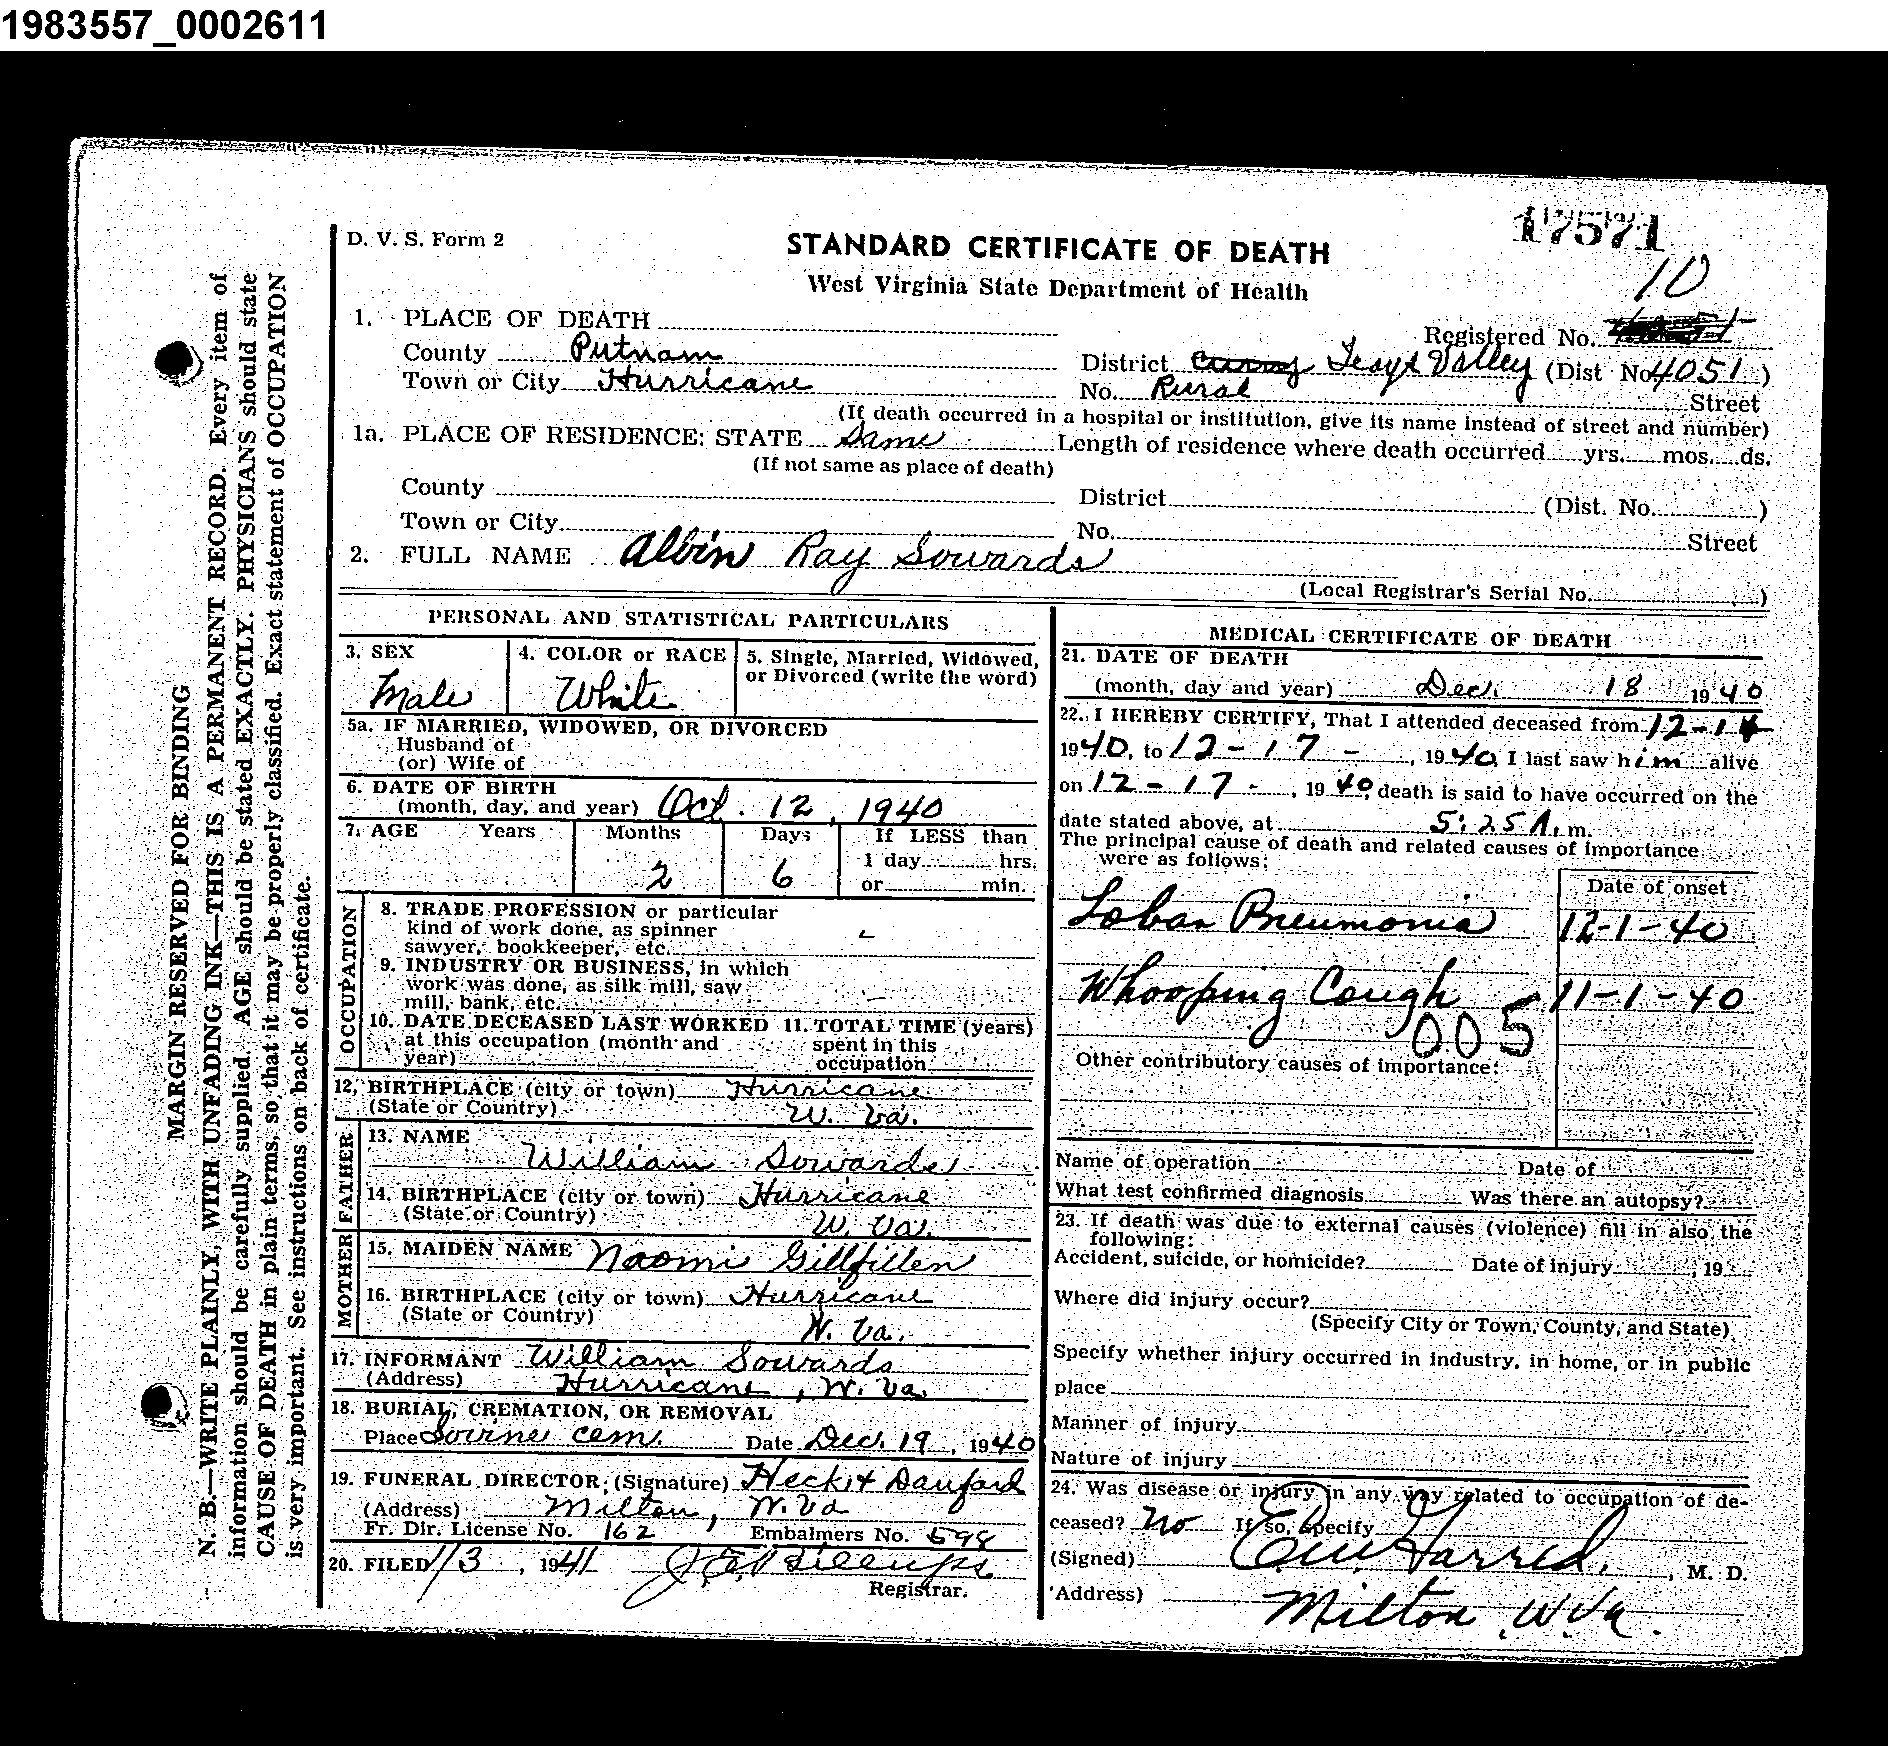 1983557_0002611
17571
D. V. S. Form 2
STANDARD CERTIFICATE OF DEATH
West Virginia State Department of Health
10
1. PLACE OF DEATH
Registered No.
County Putnam
District Curry Teays Valley (Dist No 4051)
Town or City Hurricane
No. Rural Street
(If death occurred in a hospital or institution, give its name instead of street and number)
1a. PLACE OF RESIDENCE: STATE Same Length of residence where death occurred yrs. mos. ds.
(If not same as place of death)
County District (Dist. No. )
Town or City No. Street
2. FULL NAME Albin Ray Sowards
(Local Registrar's Serial No. )
PERSONAL AND STATISTICAL PARTICULARS
3. SEX
Male
4. COLOR or RACE
White
5. Single, Married, Widowed,
or Divorced (write the word)
5a. IF MARRIED, WIDOWED, OR DIVORCED
Husband of
(or) Wife of
6. DATE OF BIRTH
(month, day, and year) Oct. 12, 1940
7. AGE Years Months Days If LESS than
1 day hrs.
2 6 or min.
OCCUPATION
8. TRADE PROFESSION or particular
kind of work done, as spinner
sawyer, bookkeeper, etc. -
9. INDUSTRY OR BUSINESS, in which
work was done, as silk mill, saw
mill, bank, etc. -
10. DATE DECEASED LAST WORKED
at this occupation (month and
year)
11. TOTAL TIME (years)
spent in this
occupation
12. BIRTHPLACE (city or town) Hurricane
(State or Country) W. Va.
FATHER
13. NAME
William Sowards
14. BIRTHPLACE (city or town) Hurricane
(State or Country) W. Va.
MOTHER
15. MAIDEN NAME Naomi Gillfillen
16. BIRTHPLACE (city or town) Hurricane
(State or Country) W. Va.
17. INFORMANT William Sowards
(Address) Hurricane, W. Va.
18. BURIAL, CREMATION, OR REMOVAL
Place Sovine Cem. Date Dec. 19, 1940
19. FUNERAL DIRECTOR (Signature) Heck &
(Address) Milton, W. Va
Fr. Dir. License No. 162 Embalmers No. 598
20. FILED 1/3, 1941
Registrar.
MEDICAL CERTIFICATE OF DEATH
21. DATE OF DEATH
(month, day and year) Dec. 18 1940
22. I HEREBY CERTIFY, That I attended deceased from 12-14
1940, to 12-17-, 1940, I last saw him alive
on 12-17-, 1940, death is said to have occurred on the
date stated above, at 5:25 A. m.
The principal cause of death and related causes of importance
were as follows:
Date of onset
Lobar Pneumonia 12-1-40
Whooping Cough 11-1-40
005
Other contributory causes of importance:
Name of operation Date of
What test confirmed diagnosis Was there an autopsy?
23. If death was due to external causes (violence) fill in also the
following:
Accident, suicide, or homicide? Date of injury , 19
Where did injury occur?
(Specify City or Town, County, and State)
Specify whether injury occurred in industry, in home, or in public
place
Manner of injury
Nature of injury
24. Was disease or injury in any way related to occupation of de-
ceased? No If so, specify
(Signed) Garred, M. D.
Address) Milton W. Va.
MARGIN RESERVED FOR BINDING
N. B.—WRITE PLAINLY, WITH UNFADING INK—THIS IS A PERMANENT RECORD. Every item of
information should be carefully supplied. AGE should be stated EXACTLY. PHYSICIANS should state
CAUSE OF DEATH in plain terms, so that it may be properly classified. Exact statement of OCCUPATION
is very important. See instructions on back of certificate.